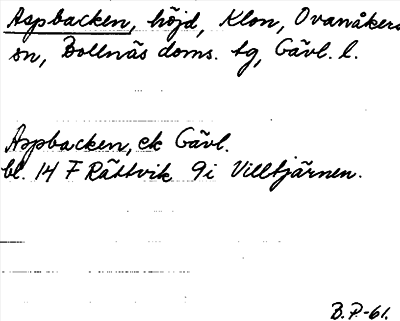 Aspbacken, höjd, Klon, Ovanåkers
sn, Bollnäs doms. tg, Gävl. l.
Aspbacken, ek Gävl.
bl. 14 F Rättvik 9i Villtjärnen.
B.P-61.